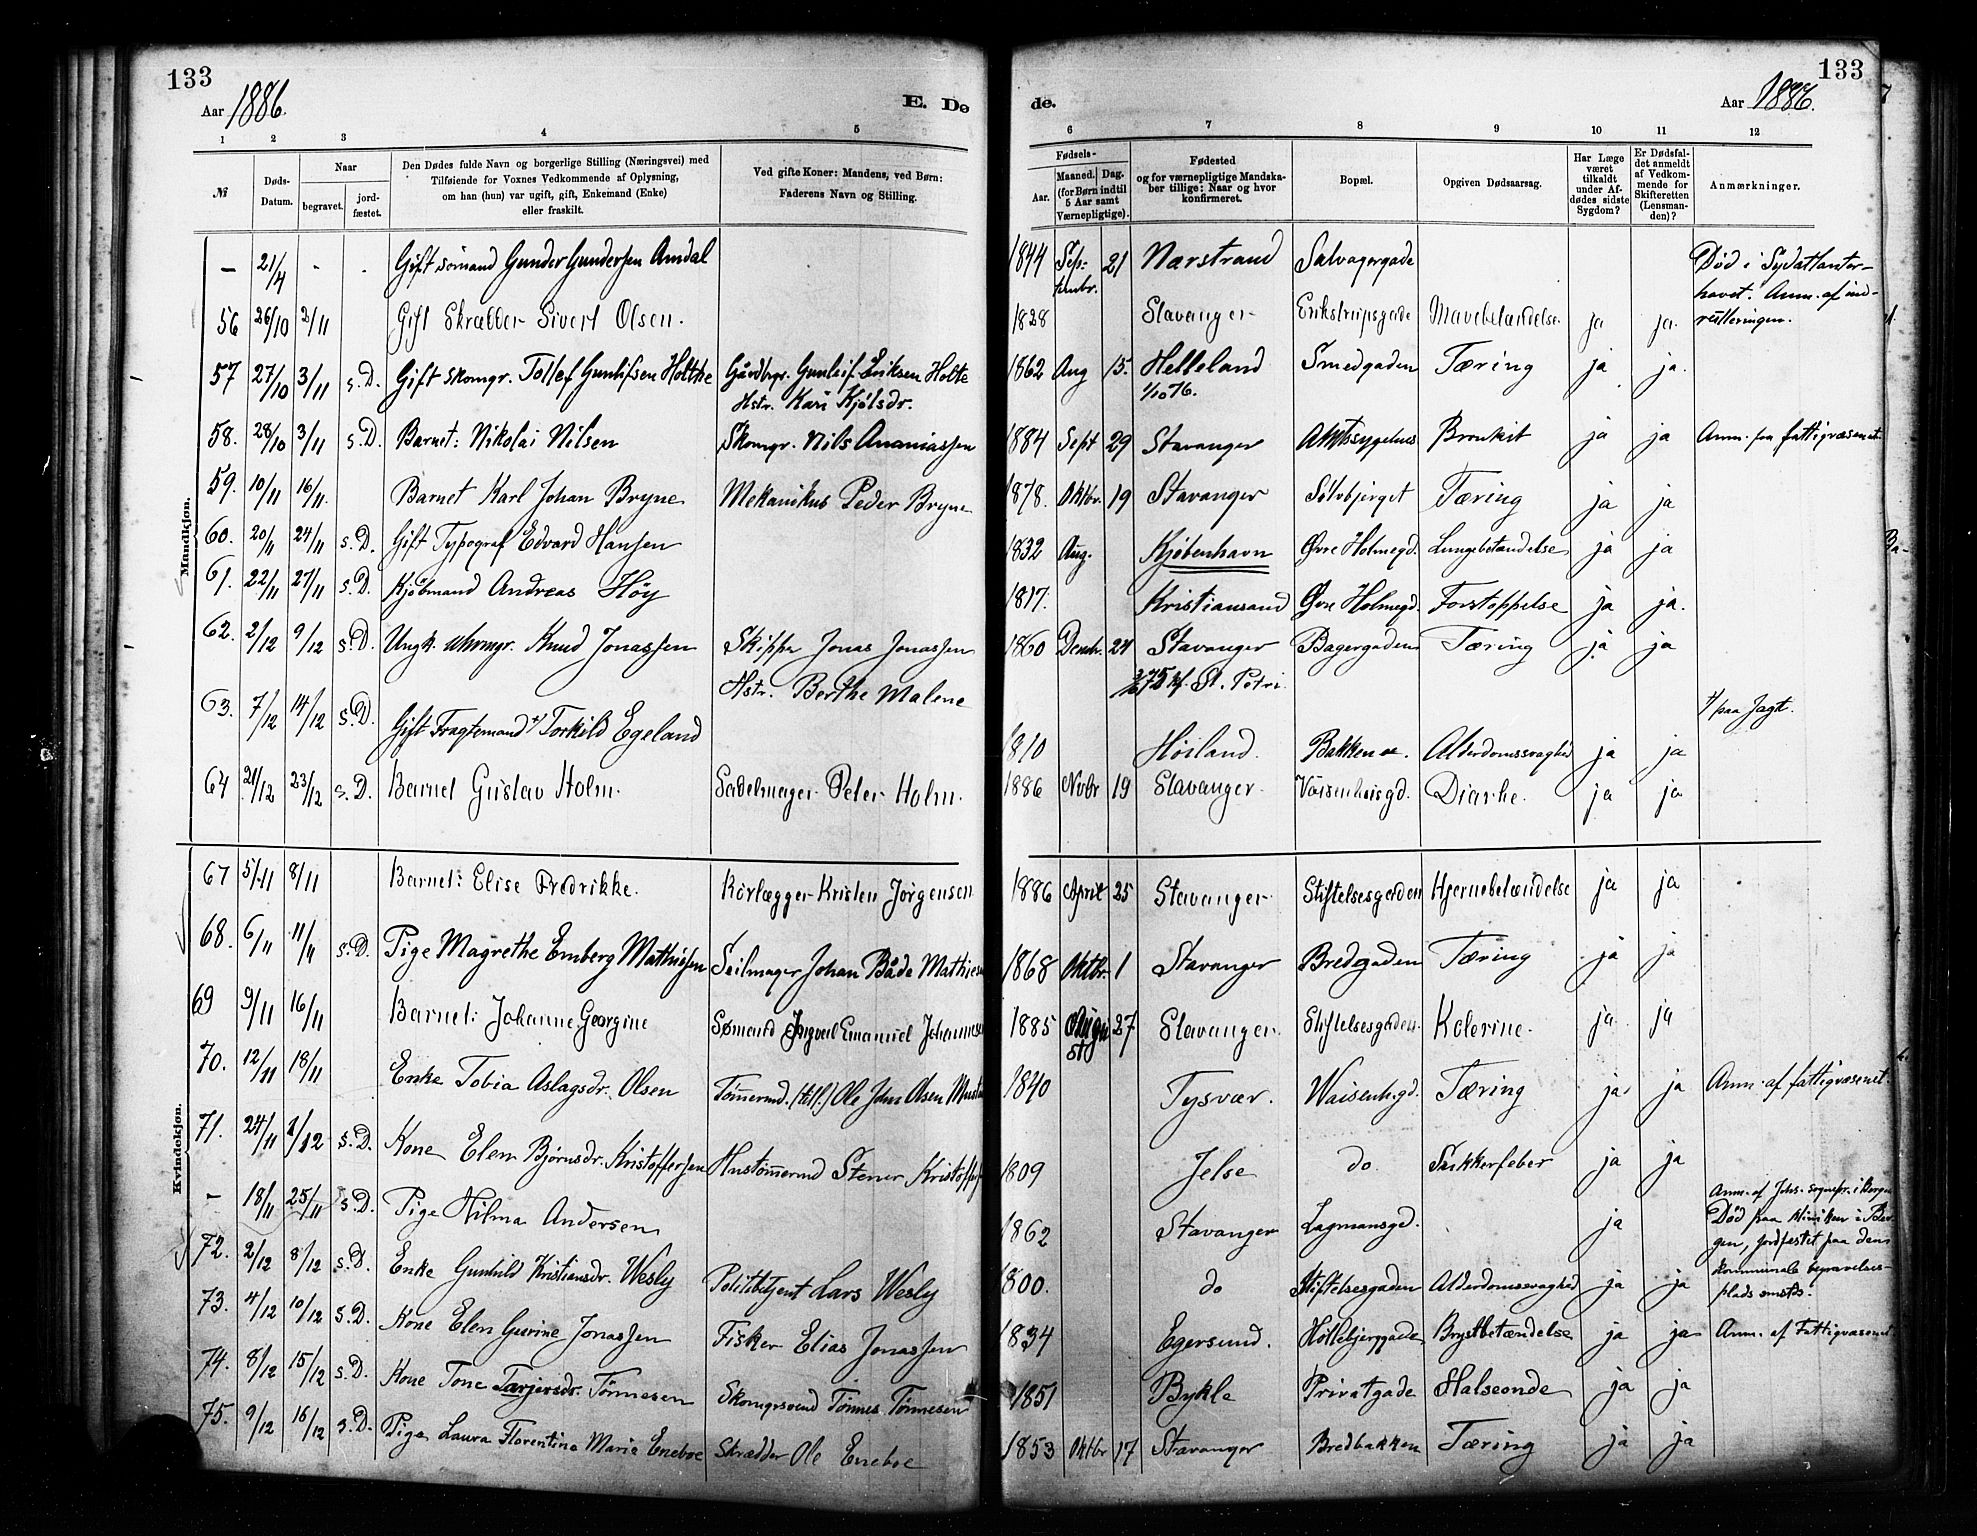 133
Aar 1886.
E. Dø
1 2 3 4 5
№
Døds-
Datum.
Naar
begravet.
jord-
fæstet.
Den Dødes fulde Navn og borgerlige Stilling (Næringsvei) med
Tilføiende for Voxnes Vedkommende af Oplysning,
om han (hun) var ugift, gift, Enkemand (Enke)
eller fraskilt.
Ved gifte Koner: Mandens, ved Børn:
Faderens Navn og Stilling.
Mandkjøn.
— 21/4 - . Gift sømand Gunder Gundersen Amdal
56 26/10 2/11 Gift Skrædder Sivert Olsen.
57 27/10 3/11 s.D. Gift Skomgr. Tollef Gunlifsen Holthe Gårdbrgr. Gunleif Eriksen Holte
Hstr. Kari Kjølsdr.
58. 28/10 3/11 s.D. Barnet: Nikolai Nilsen Skomgr. Nils Ananiassen
59. 10/11 16/11. Barnet Karl Johan Bryne Mekanikus Peder Bryne
60. 20/11 24/11 s.D. Gift Typograf Edvard Hansen
61. 22/11 27/11 s.D. Kjøbmand Andreas Höy
62. 2/12 9/12 s.D. Ungk. Uhrmgr. Knud Jonassen Skipper Jonas Jonassen
Hstr. Berthe Malene
63. 7/12 14/12 s.D. Gift Fragtemand +/ Torkild Egeland
64 21/12 23/12 s.D. Barnet Gustav Holm. Sadelmager Peter Holm.
Kvindekjøn.
67 5/11 8/11 Barnet: Elise Fredrikke. Rörlægger Kristen Jörgensen
68. 6/11 11/11 s.D. Pige Magrethe Emberg Mathissen Seilmager Johan Både Mathiesen
69 9/11 16/11 Barnet: Johanne Georgine Sømand Ingvald Emanuel Johannesen
70. 12/11 18/11 Enke Tobia Aslagsdr. Olsen Tømmermd. Ole John Olsen
71. 24/11 1/12 s.D. Kone Elen Bjørnsdr. Kristoffersen Hustømmermd Stener Kristoffersen
— 18/11 25/11 s.D. Pige Hilma Andersen
72. 2/12 8/12 s.D. Enke Gunhild Kristiansdr. Wesly Politibetjent Lars Wesly
73. 4/12 10/12 s.D. Kone Elen Gurine Jonassen Fisker Elias Jonassen
74. 8/12 15/12 s.D. Kone Tone Tarjersdr. Tönnesen Skomgrsvend Tönnes Tönnesen
75. 9/12 16/12 s.D. Pige Laura Florentine Marie Eneboe Skrædder Ole Eneboe
133
de.
Aar 1886.
6 7 8 9 10 11 12
Fødsels-
Aar.
Maaned. Dag.
(for Børn indtil
5 Aar samt
Værnepligtige).
Fødested
og for værnepligtige Mandska-
ber tillige: Naar og hvor
konfirmeret.
Bopæl.
Opgiven Dødsaarsag.
Har Læge
været
tilkaldt
under Af-
dødes sidste
Sygdom?
Er Dødsfal-
det anmeldt
af Vedkom-
mende for
Skifteretten
(Lensman-
den)?
Anmærkninger.
1844 September. 21 Narstrand Salvagergade Død i Sydatlanter-
havet. Anm. af ind-
rulleringen.
1828 Stavanger Erikstrupsgade Mavebetændelse. ja ja.
1862 Aug 15. Helleland Smedgaden Tæring ja ja.
1/10 76.
1884 Sept 29 Stavanger Amtssygehus Bronkit ja ja Anm. fra fattigvæsenet.
1878. Oktbr. 19 Stavanger Sølvbjerget Tæring ja ja
1832 Aug. Kjøbenhavn Øvre Holmegd. Lungebetændelse ja ja
1817. Kristiansand Øvre Holmegd. Forstoppelse ja ja.
1860 Dembr. 24 Stavanger Bagergaden Tæring ja ja
75 kf. St. Petri
+/ paa Jagt.
1810 Høiland. Bakken Alderdomssvaghed ja ja
1886 Novbr 19 Stavanger Vaisenhusgd. Diarhe. ja ja
1886 April 25 Stavanger Stiftelsesgaden Hjernebetændelse ja ja
1868 Oktbr. 1 Stavanger Bredgaden Tæring ja ja
1885 August 27 Stavanger. Stiftelsesgaden. Kolerine. ja ja
1840 Tysvær. Waisenh.gd. Tæring ja ja Anm. af fattigvæsenet.
1809 Jelse do Sukkerfeber ja ja
1862 Stavanger Lagmansgd. ja Anm. af Johs. sognepr. i Bergen
Død paa kliniken i Ber-
gen, jordfæstet paa dens
kommunale begravelses-
plads smsts.
1800. do Stiftelsesgaden Alderdomssvaghed ja ja
1834 Egersund. Holtebjerggade Brystbetændelse ja ja Anm. af Fattigvæsenet
1851 Bykle Privatgade Halseonde ja ja
1853 Oktbr 17 Stavanger Bredbakken Tæring ja ja